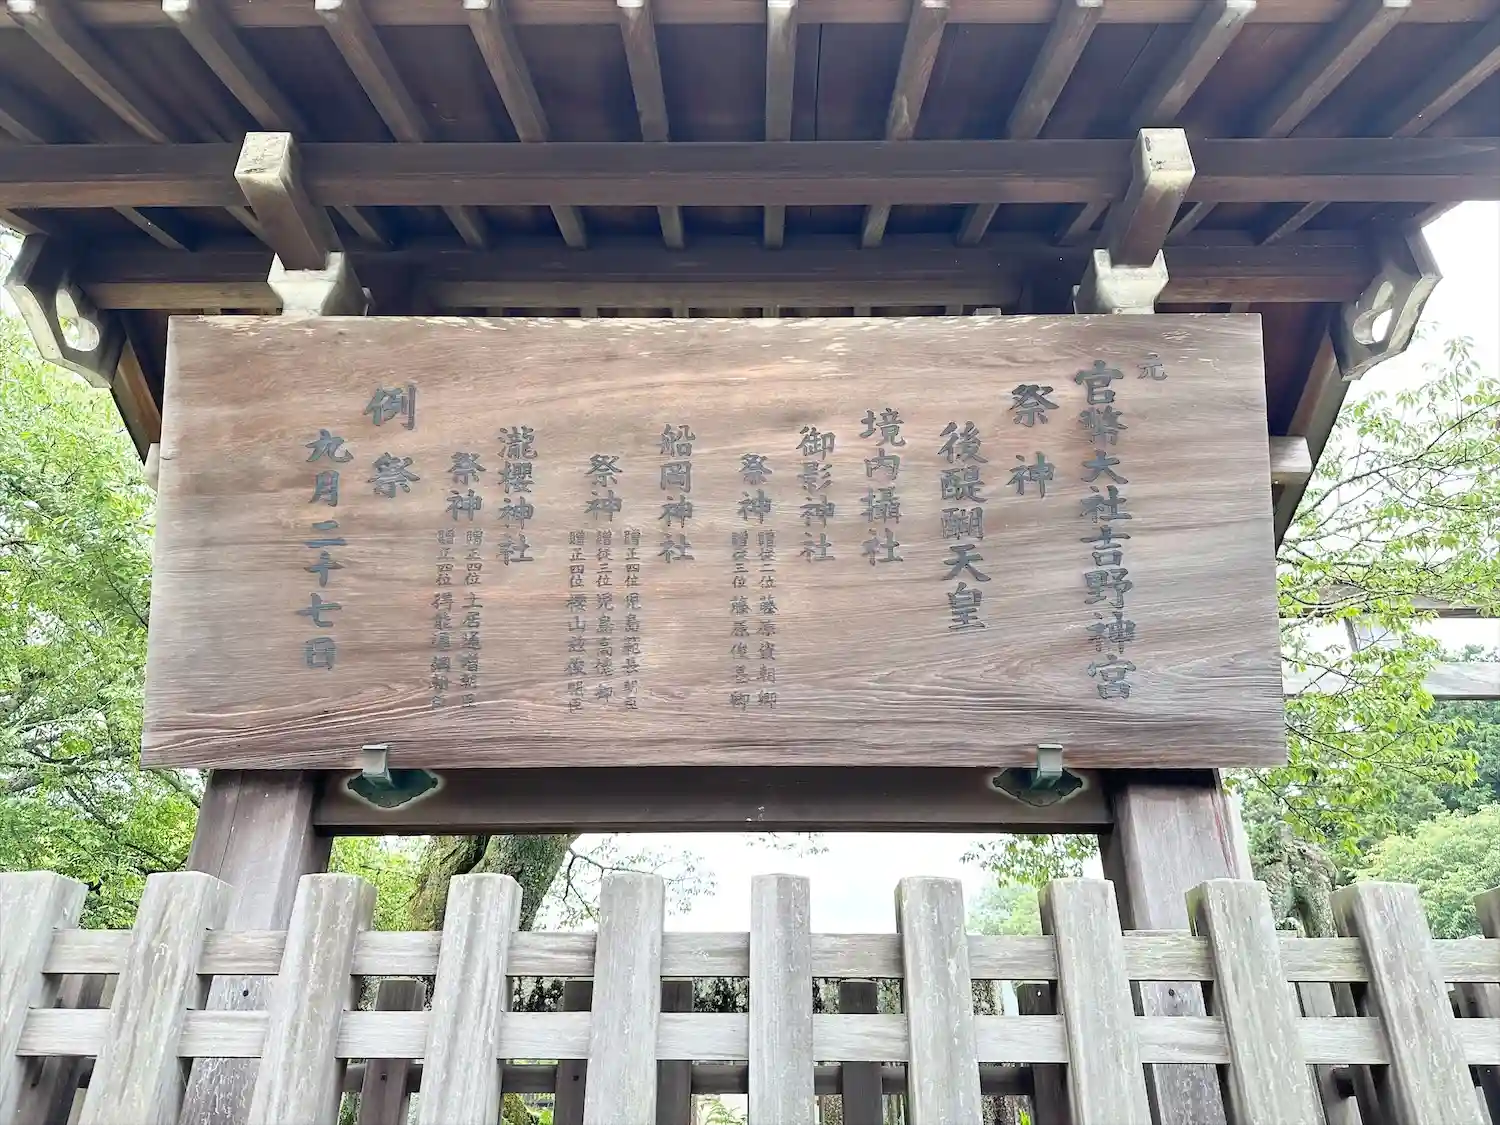 元
官幣大社吉野神宮
祭神
後醍醐天皇
境内攝社
御影神社
祭神
贈従二位 藤原資朝卿
贈従三位 藤原俊基卿
船岡神社
祭神
贈正四位 児島範長朝臣
贈従三位 児島高徳卿
贈正四位 櫻山茲俊朝臣
瀧櫻神社
祭神
贈正四位 土居通増朝臣
贈正四位 得能通綱朝臣
例祭
九月二十七日